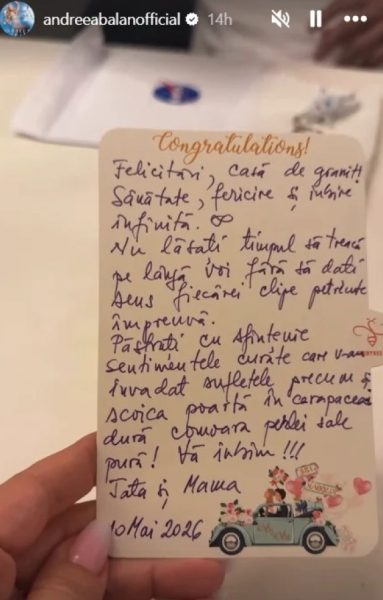 andreeabalanofficial 14h
Congratulations!
Felicitări, casă de granit!
Sănătate, fericire și iubire
infinită. ∞
Nu lăsați timpul să treacă
pe lângă voi fără să dați
sens fiecărei clipe petrecute
împreună.
Păstrați cu sfințenie
sentimentele curate care v-au
invadat sufletele precum și
scoica poartă în carapacea
dură comoara perlei sale
pură! Vă iubim!!!
Tata și Mama
10 Mai 2026